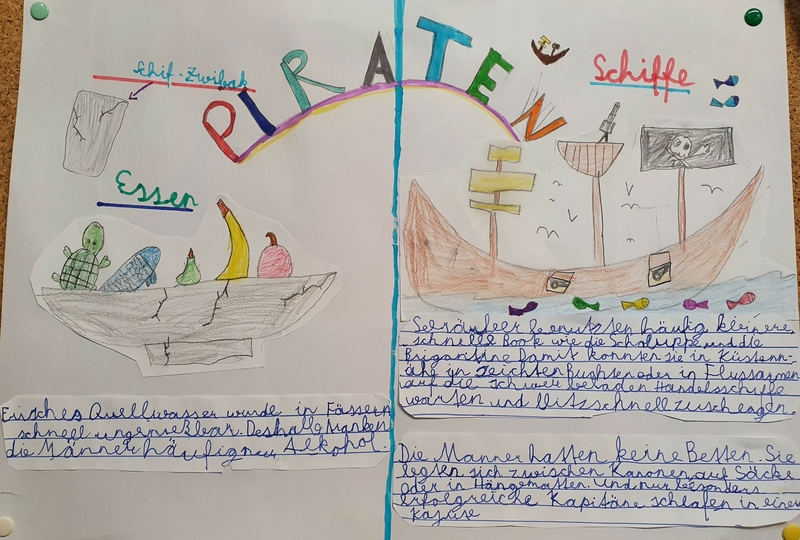 PIRATEN
Schif-Zwibak
Essen
Frisches Quellwasser wurde in Fässern
schnell ungenießbar. Deshalb tranken
die Männer häufig nur Alkohol.
Schiffe
Seeräuber benutzten häufig kleinere
schnelle Boote wie die Schaluppe und die
Brigantine Damit konnten sie in Küstenn-
ähe in seichten Buchten oder in Flussarmen
auf die schwer beladen Handelsschiffe
warten und blitzschnell zuschlagen.
Die Männer hatten keine Betten. Sie
legten sich zwischen Kanonen auf Säcke
oder in Hängematten. Und nur besonders
erfolgreiche Kapitäne schlafen in einer
Kajüte